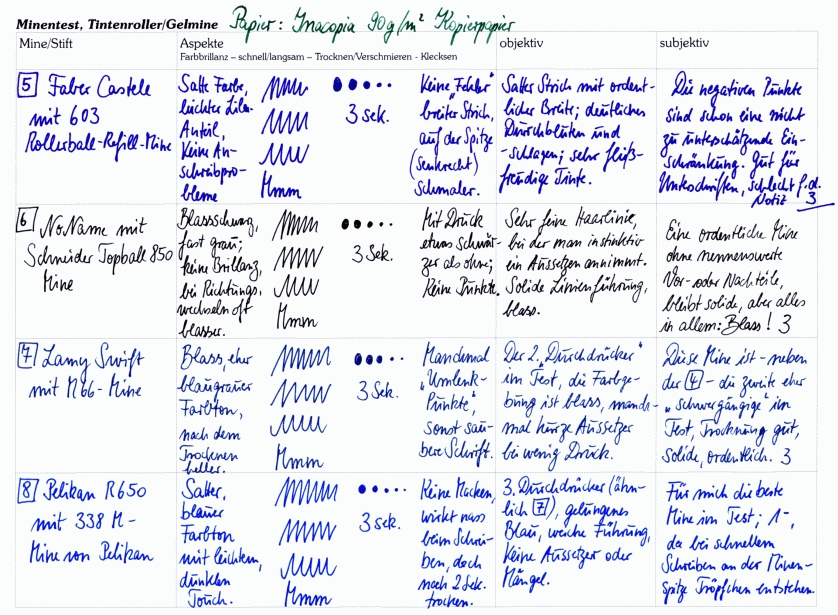 Minentest, Tintenroller/Gelmine Papier: Inacopia 90g/m² Kopierpapier
Mine/Stift
Aspekte
Farbbrillanz – schnell/langsam – Trocknen/Verschmieren - Klecksen
objektiv
subjektiv
5 Faber Castell
mit 603
Rollerball-Refill-Mine
Satte Farbe,
leichter Lila-
Anteil,
Keine An-
schreibpro-
bleme
Mmm
3 Sek.
Keine "Fehler"
breiter Strich,
auf der Spitze
(senkrecht)
schmaler.
Satter Strich mit ordent-
licher Breite; deutliches
Durchbluten und
-schlagen; sehr fließ-
freudige Tinte.
Die negativen Punkte
sind schon eine nicht
zu unterschätzende Ein-
schränkung. Gut für
Unterschriften, schlecht f.d.
Notiz 3
6 NoName mit
Schneider Topball 850
Mine
Blassschwarz,
fast grau;
keine Brillanz,
bei Richtungs-
wechseln oft
blasser.
Mmm
3 Sek.
Mit Druck
etwas schwär-
zer als ohne;
Keine Punkte.
Sehr feine Haarlinie,
bei der man instinktiv
ein Aussetzen annimmt.
Solide Linienführung,
blass.
Eine ordentliche Mine
ohne nennenswerte
Vor- oder Nachteile,
bleibt solide, aber alles
in allem: Blass! 3
7 Lamy Swift
mit M66-Mine
Blass, eher
blaugrauer
Farbton,
nach dem
Trocknen
heller.
Mmm
3 Sek.
Manchmal
"Umlenk-
Punkte",
sonst sau-
bere Schrift.
Der 2. "Durchdrücker"
im Test, die Farbge-
bung ist blass, manch-
mal kurze Aussetzer
bei wenig Druck.
Diese Mine ist - neben
der 4 - die zweite eher
"schwergängige" im
Test, Trocknung gut,
Solide, ordentlich. 3
8 Pelikan R650
mit 338 M-
Mine von Pelikan
Satter,
blauer
Farbton
mit leichtem,
dunklen
Touch.
Mmm
3 Sek.
Keine Macken,
wirkt nass
beim Schrei-
ben, doch
nach 2 Sek.
trocken.
3. Durchdrücker (ähn-
lich 7), gelungenes
Blau, weiche Führung,
Keine Aussetzer oder
Mängel.
Für mich die beste
Mine im Test; 1-,
da bei schnellem
Schreiben an der Minen-
spitze Tröpfchen entstehen.